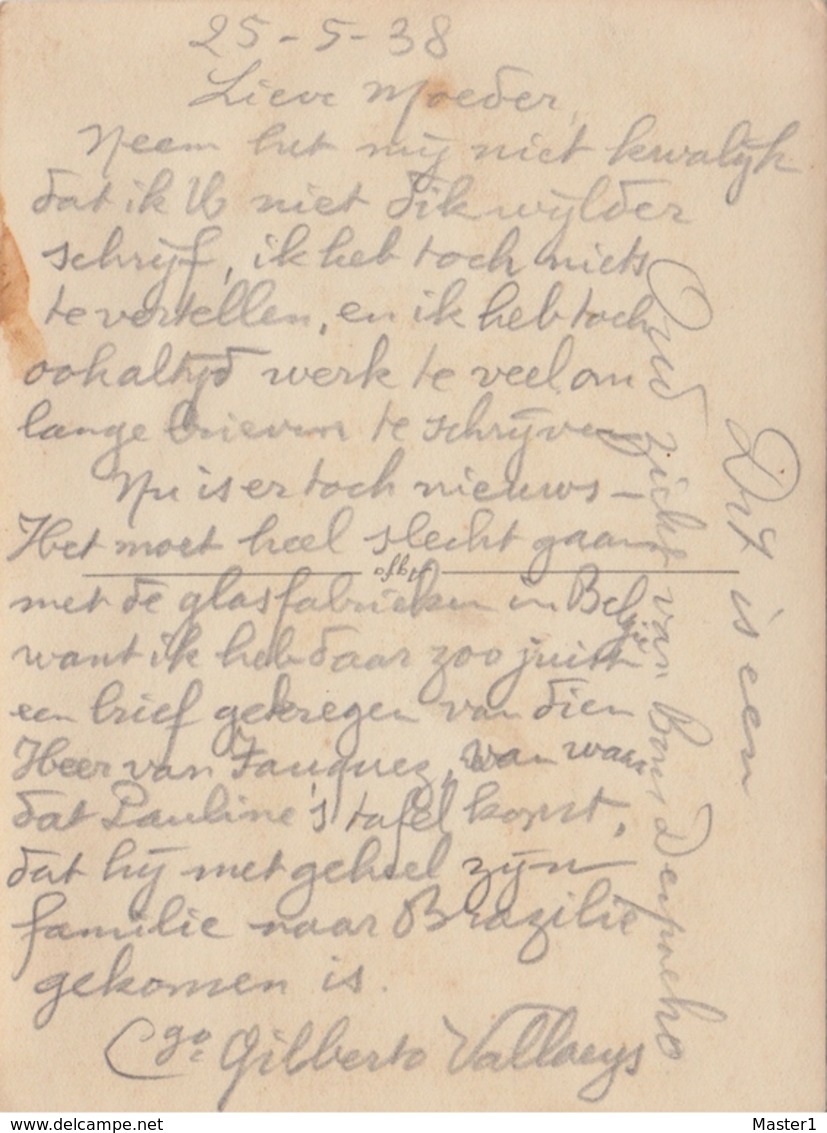 25-5-38
Lieve Moeder,
Neem het mij niet kwalijk
dat ik U niet dikwijlder
schrijf, ik heb toch niets
te vertellen, en ik heb toch
ook altijd werk te veel om
lange brieven te schrijven
Nu is er toch nieuws -
Het moet heel slecht gaan
met de glasfabrieken in België
want ik heb daar zoo juist
een brief gekregen van dien
Heer van Fauquez, van waar
dat Pauline's tafel komt,
dat hij met geheel zijn
familie naar Brazilie
gekomen is.
Cgo Gilberto Vallaeys
Dit is een
Oud zicht van Bom Despacho
Agfa
Master1
www.delcampe.net